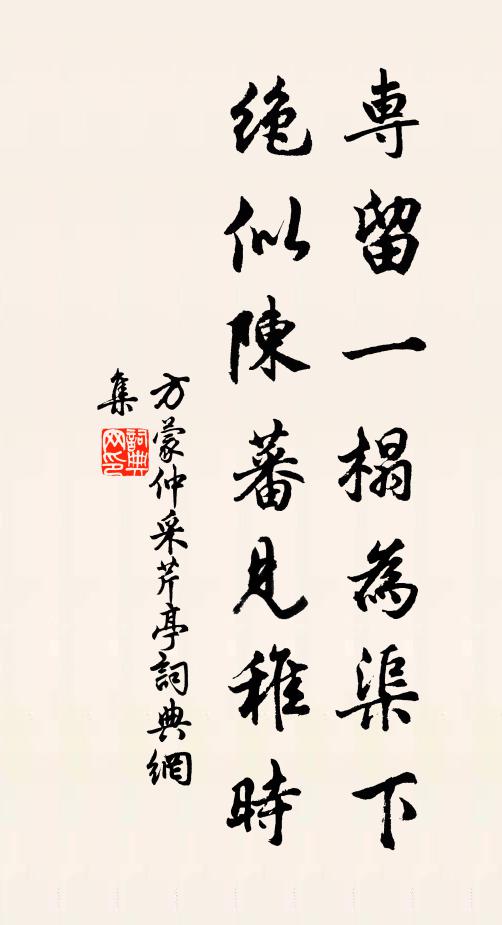 専留一榻為渠下
絶似陳蕃見稚時
方蒙仲采芹亭詞典網
集
詞典網印